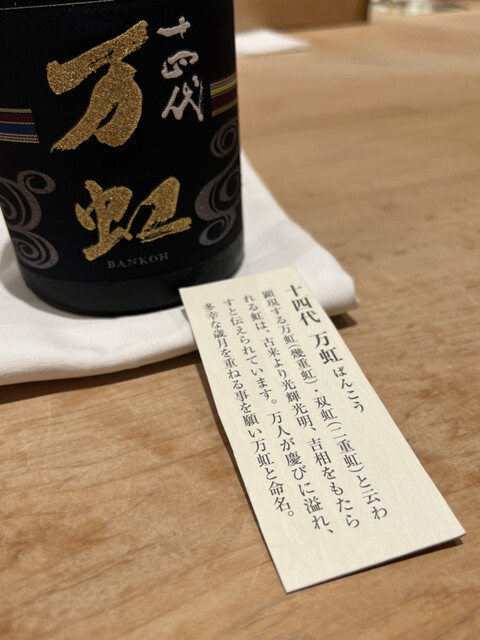 十四代
万虹
BANKOH
十四代 万虹 ばんこう
顕現する万虹(幾重虹)・双虹(二重虹)と云わ
れる虹は、古来より光輝光明、吉相をもたら
すと伝えられています。万人が慶びに溢れ、
多幸な歳月を重ねる事を願い万虹と命名。